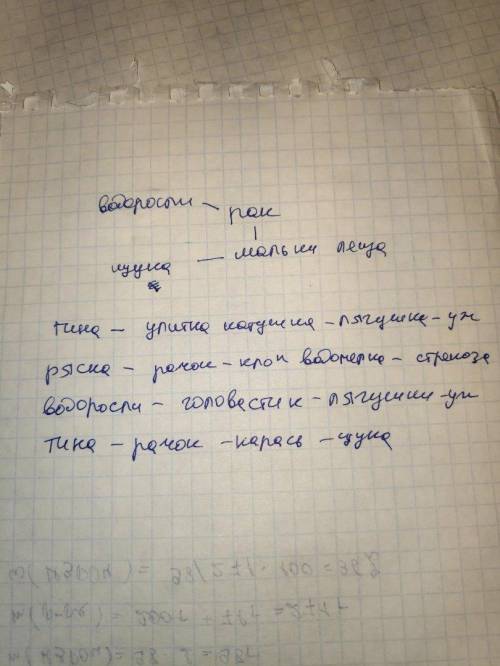 водоросли – рак
щука — мальки леща
тина – улитка катушка – лягушка – уж
ряска – рачок – клоп водомерка – стрекоза
водоросли – головастик – лягушки – уж
тина – рачок – карась – щука